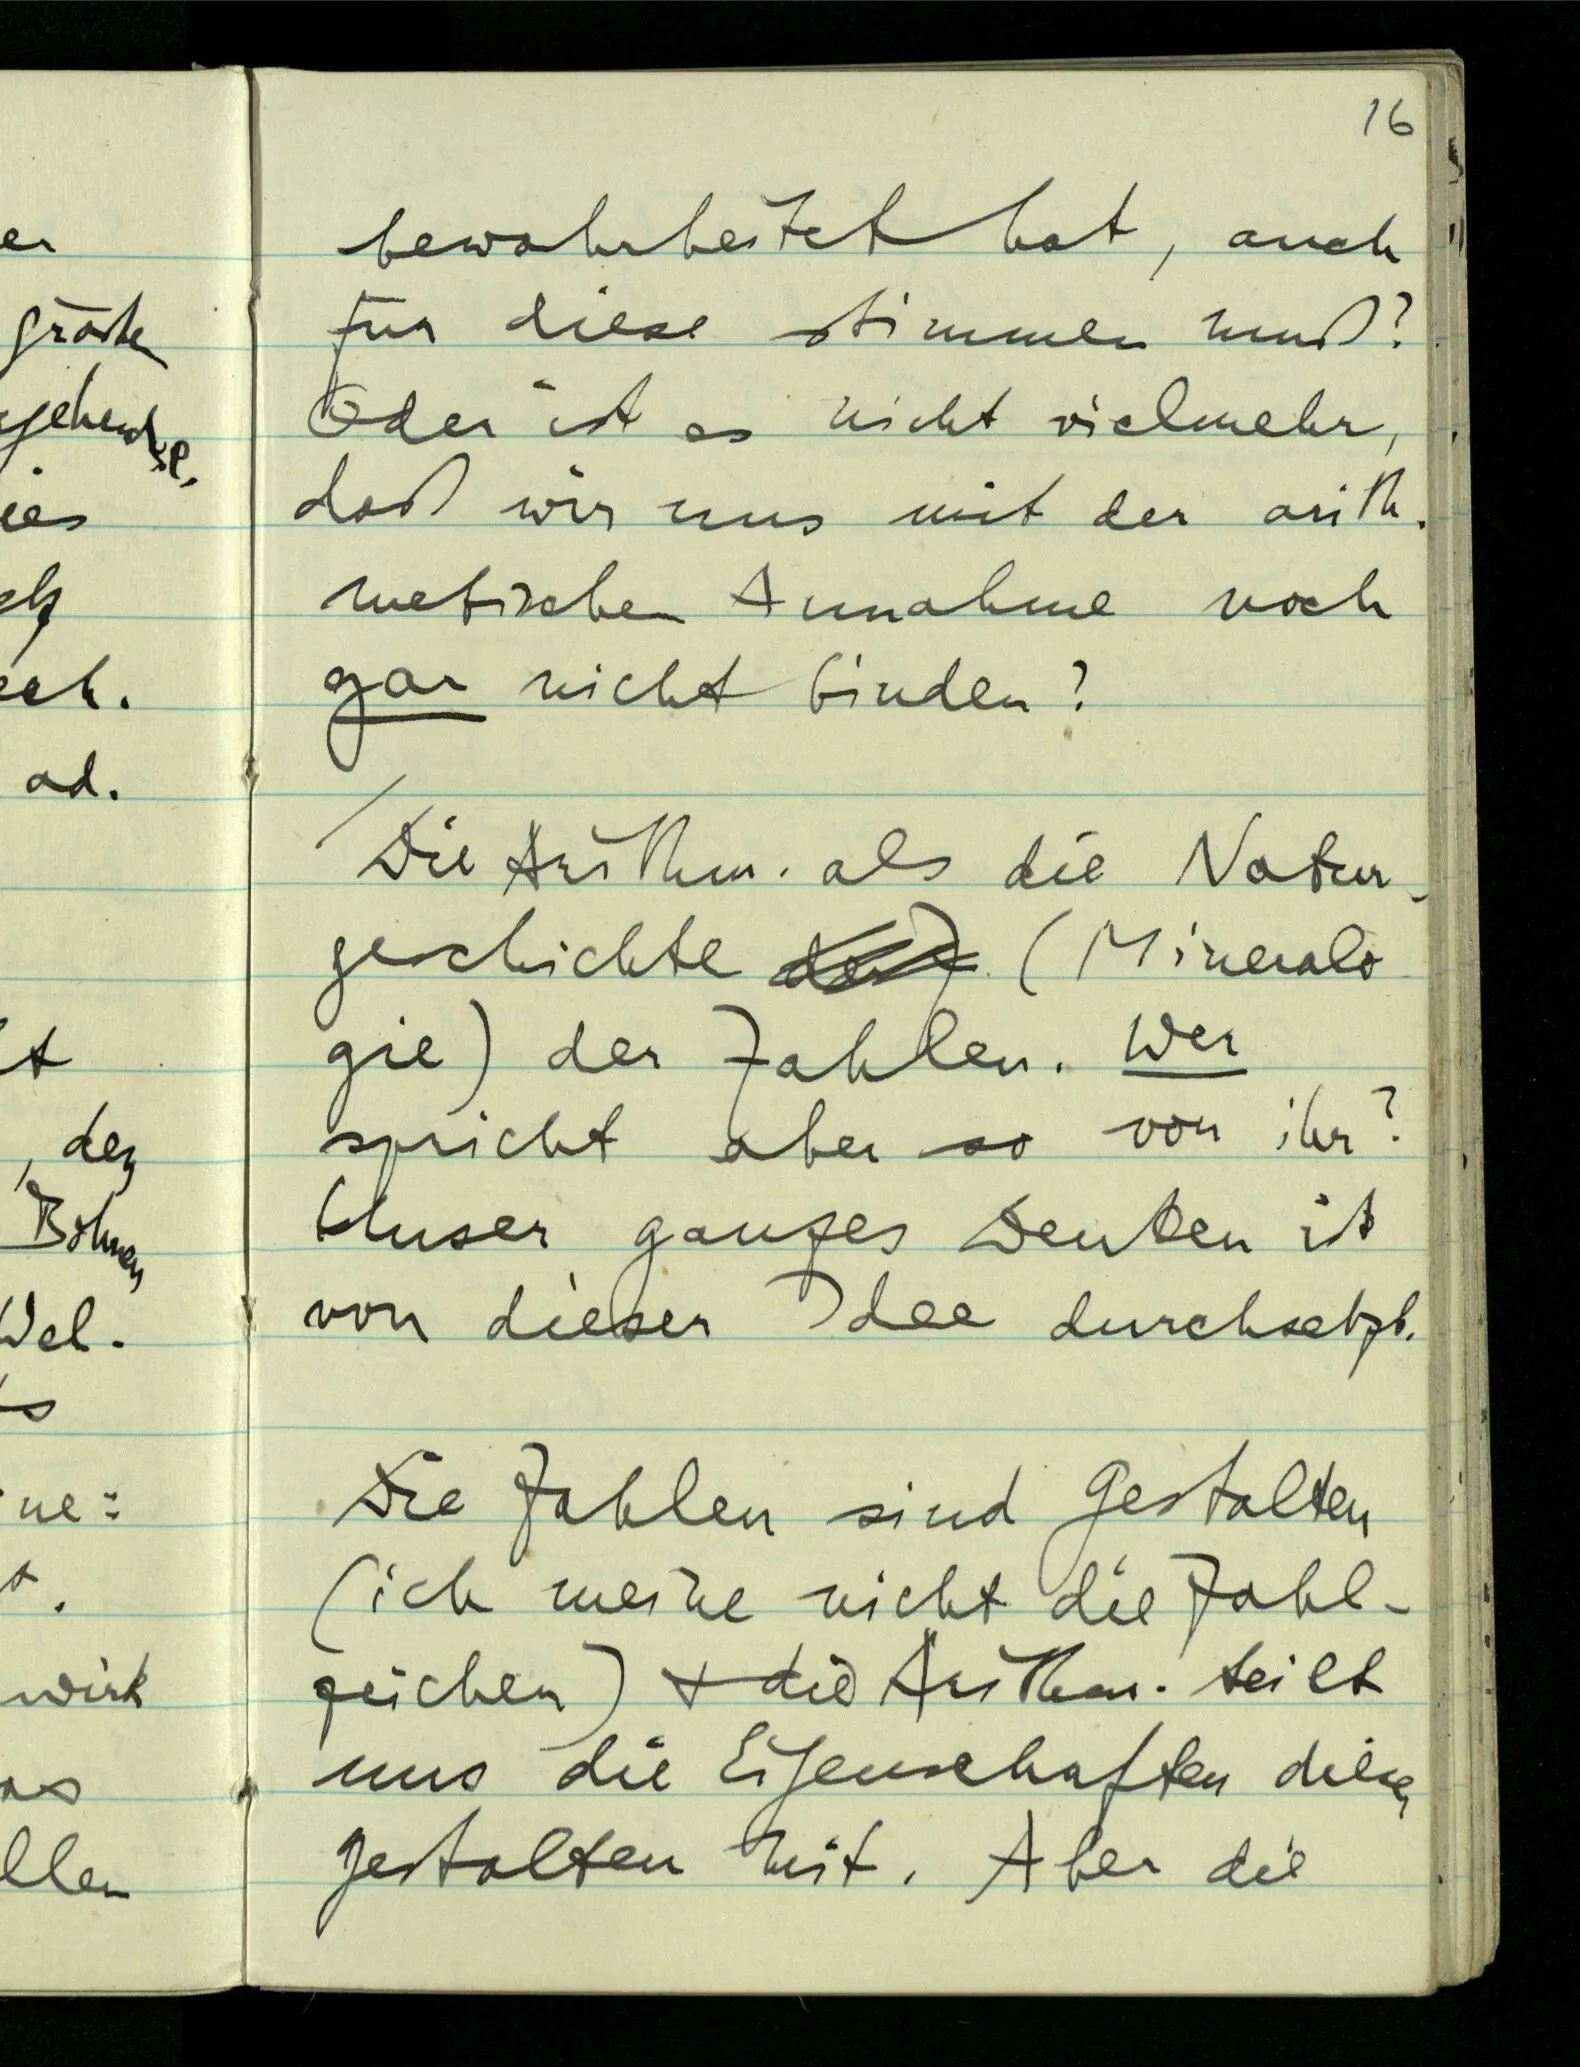 16
bewahrheitet hat, auch
für diese stimmen muß?
Oder ist es nicht vielmehr,
daß wir uns mit der arith.
metischen Annahme noch
gar nicht binden?
/
Die Arithm. als die Natur-
geschichte (Mineralo
gie) der Zahlen. Wer
spricht aber so von ihr?
Unser ganzes Denken ist
von dieser Idee durchsetzt.
Die Zahlen sind Gestalten
(ich meine nicht die Zahl-
zeichen) + die Arithm. teilt
uns die Eigenschaften dieser
Gestalten mit. Aber die
er
ies
ad.
, der
Bohnen
wirk
llen